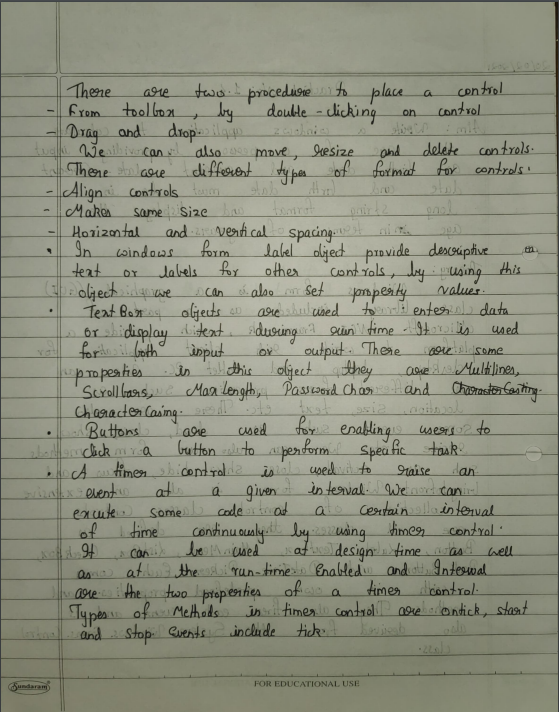 There are two procedure to place a control
- From toolbox, by double-clicking on control
- Drag and drop.
We can also move, resize and delete controls.
There are different types of format for controls.
- Align controls
- Makes same size
- Horizontal and vertical spacing.
• In windows form label object provide descriptive
text or labels for other controls, by using this
object we can also set property values.
• TextBox objects are used to enter data
or display text during run time. It is used
for both input or output. There are some
properties in this object they are Multilines,
Scrollbars, MaxLength, PasswordChar and Character Casting.
Character Casing.
• Buttons are used for enabling users to
click a button to perform specific task.
• A timer control is used to raise an
event at a given interval. We can
excute some code at a certain interval
of time continuously by using timer control.
It can be used at design-time as well
as at the run-time. Enabled and Interval
are the two properties of a timer control.
Types of Methods in timer control are ontick, start
and stop. Events include tick.
Sundaram
FOR EDUCATIONAL USE